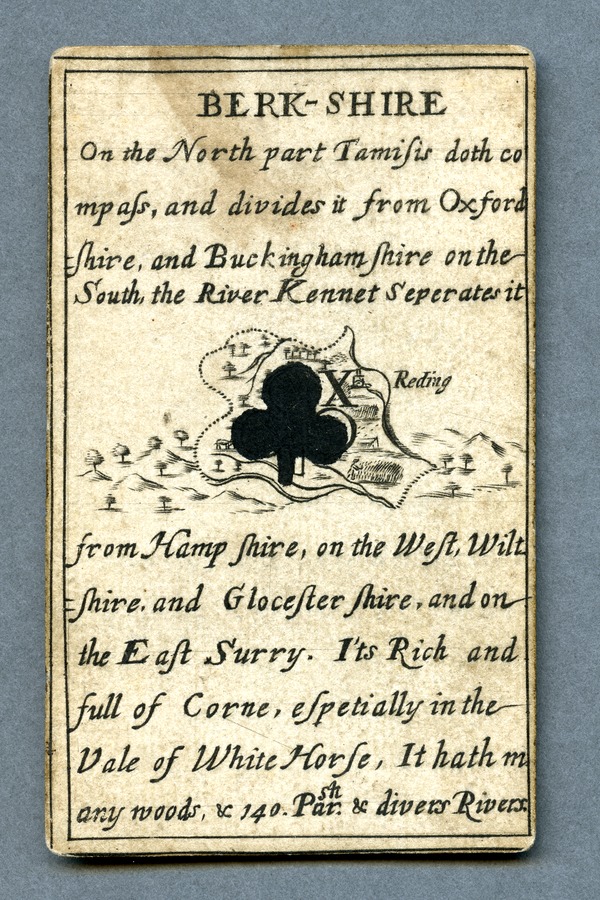 BERK-SHIRE
On the North part Tamiſis doth co
mpaſs, and divides it from Oxford
ſhire, and Buckingham ſhire on the
South, the River Kennet Seperates it
X Reding
from Hamp ſhire, on the Weſt, Wilt
ſhire. and Gloceſter ſhire, and on
the Eaſt Surry. I'ts Rich and
full of Corne, eſpetially in the
Vale of White Horſe, It hath m
any woods, & 140. Par.sh & divers Rivers.